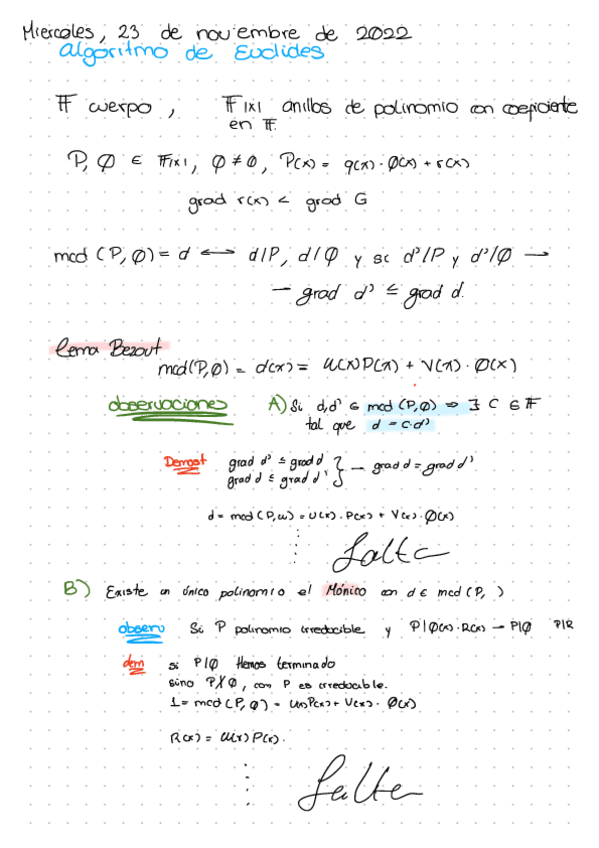 Miercoles, 23 de noviembre de 2022
algoritmo de Euclides
𝔽 cuerpo, 𝔽[x] anillos de polinomio con coeficiente
en 𝔽.
P, Q ∈ 𝔽[x], Q ≠ 0, P(x) = q(x)·Q(x) + r(x)
grad r(x) < grad G
mcd (P, Q) = d ⟷ d/P, d/Q y si d'/P y d'/Q →
— grad d' ≤ grad d.
Lema Bezout
mcd(P,Q) = d(x) = U(x)P(x) + V(x)·Q(x)
observaciones A) Si d,d' ∈ mcd (P,Q) ⇒ ∃ C ∈ 𝔽
tal que d = c·d'
Demost grad d' ≤ grad d } — grad d = grad d'
grad d ≤ grad d'
d = mcd (P,Q) = U(x)·P(x) + V(x)·Q(x)
⋮ falta
B) Existe un único polinomio el Mónico con d ∈ mcd (P, )
observ Si P polinomio irreducible y P|Q(x)·R(x) → P|Q P|R
dem si P|Q Hemos terminado
sino P∤Q, con P es irreducible.
1 = mcd (P,Q) = U(x)P(x) + V(x)·Q(x)
R(x) = U(x)P(x).
⋮ falta